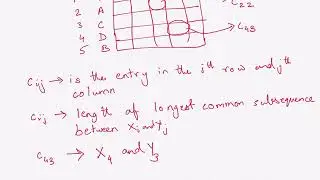 2 A
3 C
4 D
5 B
C22
C43
Cij → is the entry in the ith row and jth
column
Cij → length of longest common subsequence
between Xi and Yj
C43 → X4 and Y3